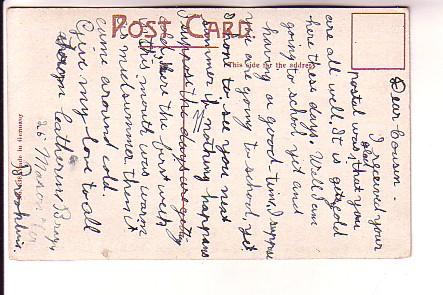 POST CARD
This side for the address
Dear Cousin -
I received your
postal was glad that you
are all well. It is getg cold
here these days. Well I am
going to school yet and
having a good time. I suppose
you are going to school, yet.
I hope to see you next
summer if nothing happens
I suppose the days are getting
cold, here the first week
this month was warm
midsummer then it
came around cold
Give my love to all
Catherine
26
Brooklyn.
made in Germany